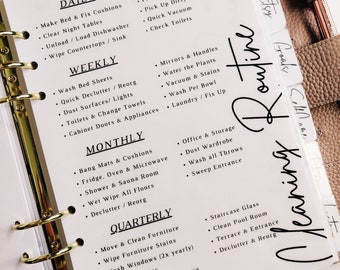 DAILY
Make Bed & Fix Cushions
Clear Night Tables
Unload / Load Dishwasher
Wipe Countertops / Sink
Pick Up Dirty
Quick Vacuum
Check Toilets
WEEKLY
Wash Bed Sheets
Quick Declutter / Reorg
Dust Surfaces/ Lights
Toilets & Change Towels
Cabinet Doors & Appliances
Mirrors & Handles
Water the Plants
Vacuum & Stains
Wash Pet Bowl
Laundry / Fix Up
MONTHLY
Bang Mats & Cushions
Fridge, Oven & Microwave
Shower & Sauna Room
Wet Wipe All Floors
Declutter / Reorg
Office & Storage
Dust Wardrobe
Wash all Throws
Sweep Entrance
QUARTERLY
Move & Clean Furniture
Wipe Furniture Stains
Wash Windows (2x yearly)
Staircase Glass
Clean Pool Room
Terrace & Entrance
Declutter & Reorg
Cleaning Routine
Goals